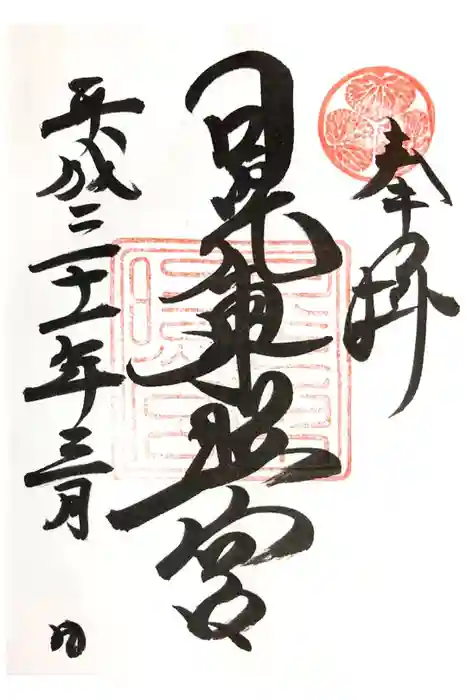 奉拝
日光東照宮
平成三十一年三月 日